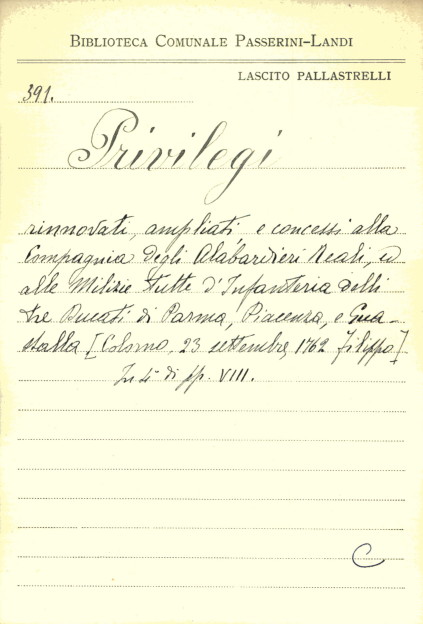 BIBLIOTECA COMUNALE PASSERINI-LANDI
LASCITO PALLASTRELLI
391.
Privilegi
rinnovati, ampliati e concessi alla
Compagnia degli Alabardieri Reali, ed
alle Milizie tutte d'Infanteria delli
tre Ducati di Parma, Piacenza, e Gua-
stalla [Colorno, 23 settembre 1762 Filippo]
In 4° di pp. VIII.
C